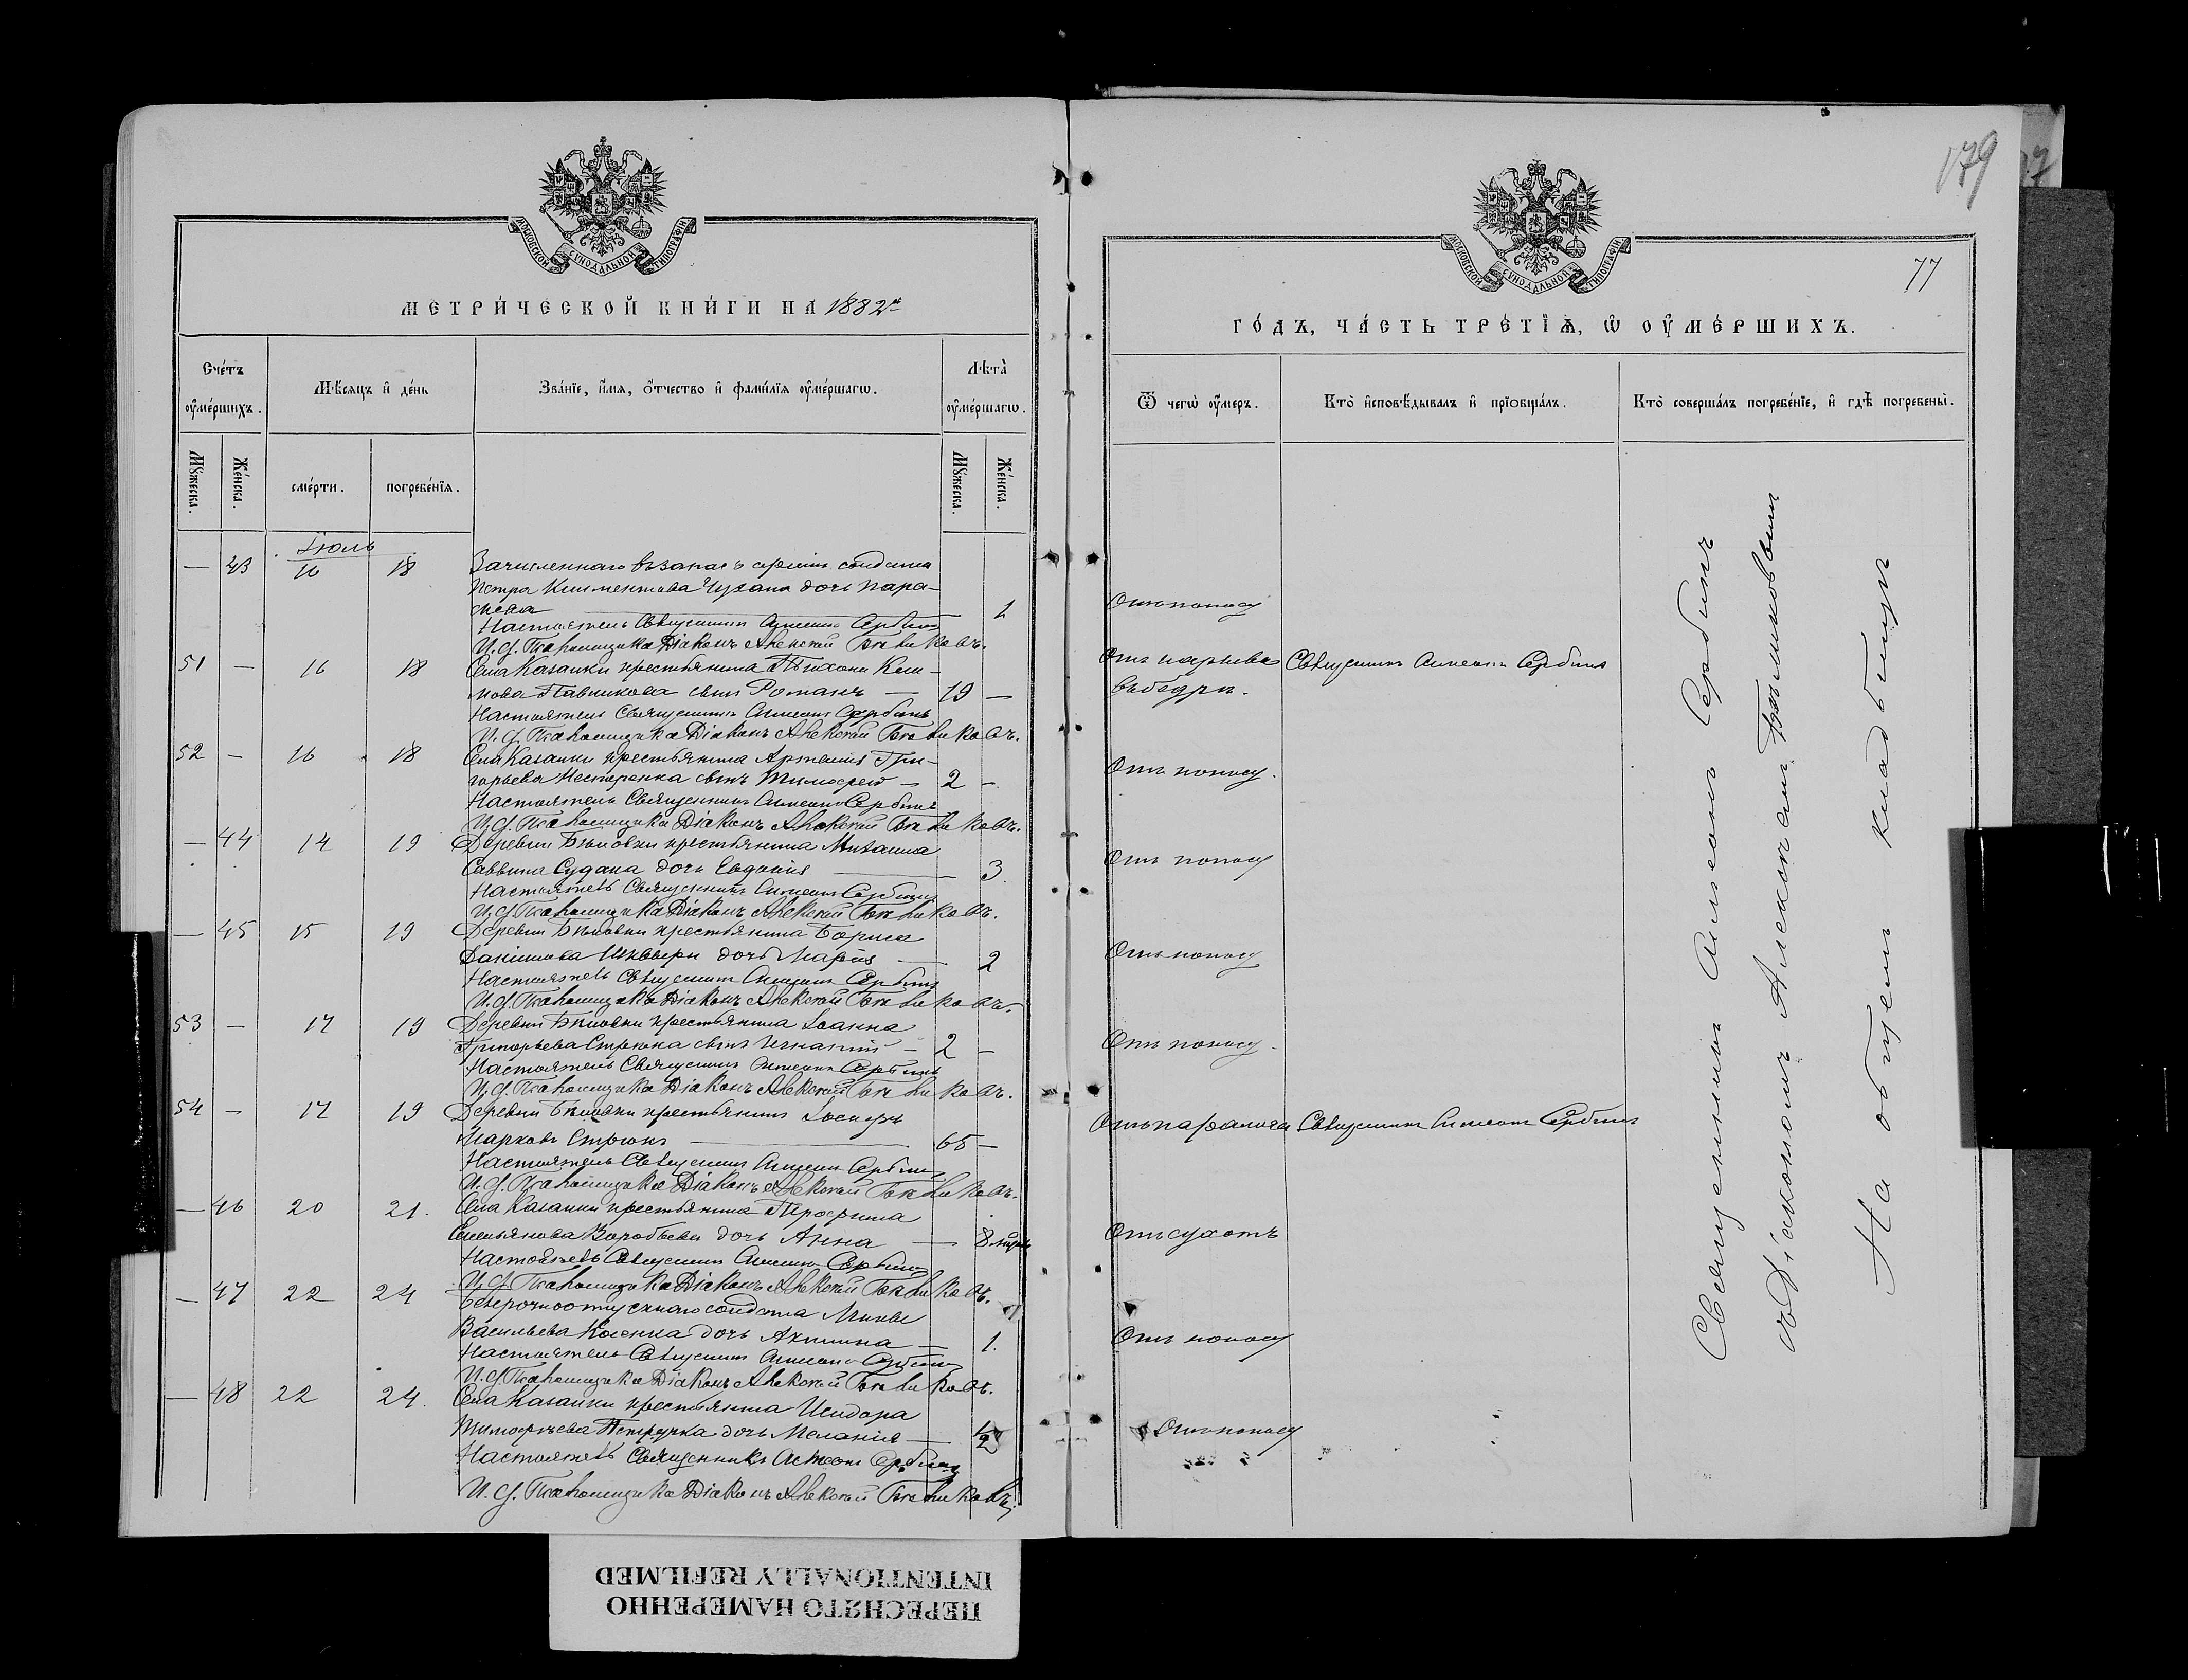 МОСКОВСКОЙ СѴНОДАЛЬНОЙ ТИПОГРАФІИ
МЕТРИ́ЧЕСКОЙ КНИ́ГИ НА 1882 г.
Сче́тъ оумершихъ.
Мѣсяцъ и день
Званіе, имя, отчество и фамилія оумершагѡ.
Лѣта оумершагѡ.
Мꙋжеска.
Женска.
смерти.
погребенія.
Мꙋжеска.
Женска.
Іюль
— 43 16 18 Зачисленнаго въ запасъ арміи солдата
Петра Климентова Чухана дочь Пара-
скева — 1
Настоятель Священникъ Симеонъ Сербинъ
И. д. Псаломщика Діаконъ Алексѣй
51 — 16 18 Села Казанки крестьянина Тихона Кли-
мова Павликова сынъ Романъ — 19 —
Настоятель Священникъ Симеонъ Сербинъ
И. д. Псаломщика Діаконъ Алексѣй
52 — 16 18 Села Казанки крестьянина Артемія Гри-
горьева Нестеренка сынъ Тимофей — 2 —
Настоятель Священникъ Симеонъ Сербинъ
И. д. Псаломщика Діаконъ Алексѣй
— 44 14 19 Деревни Бѣловки крестьянина Михаила
Саввина Судака дочь Евдокія — 3
Настоятель Священникъ Симеонъ Сербинъ
И. д. Псаломщика Діаконъ Алексѣй
— 45 15 19 Деревни Бѣловки крестьянина Бориса
Данилова дочь Марія — 2
Настоятель Священникъ Симеонъ Сербинъ
И. д. Псаломщика Діаконъ Алексѣй
53 — 17 19 Деревни Бѣловки крестьянина Іоанна
Григорьева Стрюка сынъ Игнатій — 2 —
Настоятель Священникъ Симеонъ Сербинъ
И. д. Псаломщика Діаконъ Алексѣй
54 — 17 19 Деревни Бѣловки крестьянинъ Іосифъ
Марковъ Стрюкъ — 65 —
Настоятель Священникъ Симеонъ Сербинъ
И. д. Псаломщика Діаконъ Алексѣй
— 46 20 21. Села Казанки крестьянина Трофима
Емельянова Воробьева дочь Анна — 8 мѣс.
Настоятель Священникъ Симеонъ Сербинъ
И. д. Псаломщика Діаконъ Алексѣй
— 47 22 24 Безсрочноотпускнаго солдата
Васильева дочь Акилина — 1.
Настоятель Священникъ Симеонъ Сербинъ
И. д. Псаломщика Діаконъ Алексѣй
— 48 22 24. Села Казанки крестьянина Исидора
Тимофѣева дочь Меланія — 1/2
Настоятель Священникъ Симеонъ Сербинъ
И. д. Псаломщика Діаконъ Алексѣй
179
77
МОСКОВСКОЙ СѴНОДАЛЬНОЙ ТИПОГРАФІИ
ГО́ДЪ, ЧА́СТЬ ТРЕ́ТІѦ, Ѡ ОУМЕ́РШИХЪ.
Ѿ чегѡ оумеръ.
Кто исповѣдывалъ и пріобщалъ.
Кто совершалъ погребеніе, и гдѣ погребены.
Отъ поносу
Отъ нарыва Священникъ Симеонъ Сербинъ
въ бедрѣ.
Отъ поносу.
Отъ поносу
Отъ поносу
Отъ поносу.
Отъ паралича Священникъ Симеонъ Сербинъ
Отъ сухотъ
Отъ поносу
Отъ поносу
Священникъ Симеонъ Сербинъ
съ Діакономъ Алексѣемъ
На общемъ кладбищѣ
ПЕРЕСНЯТО НАМЕРЕННО
INTENTIONALLY REFILMED